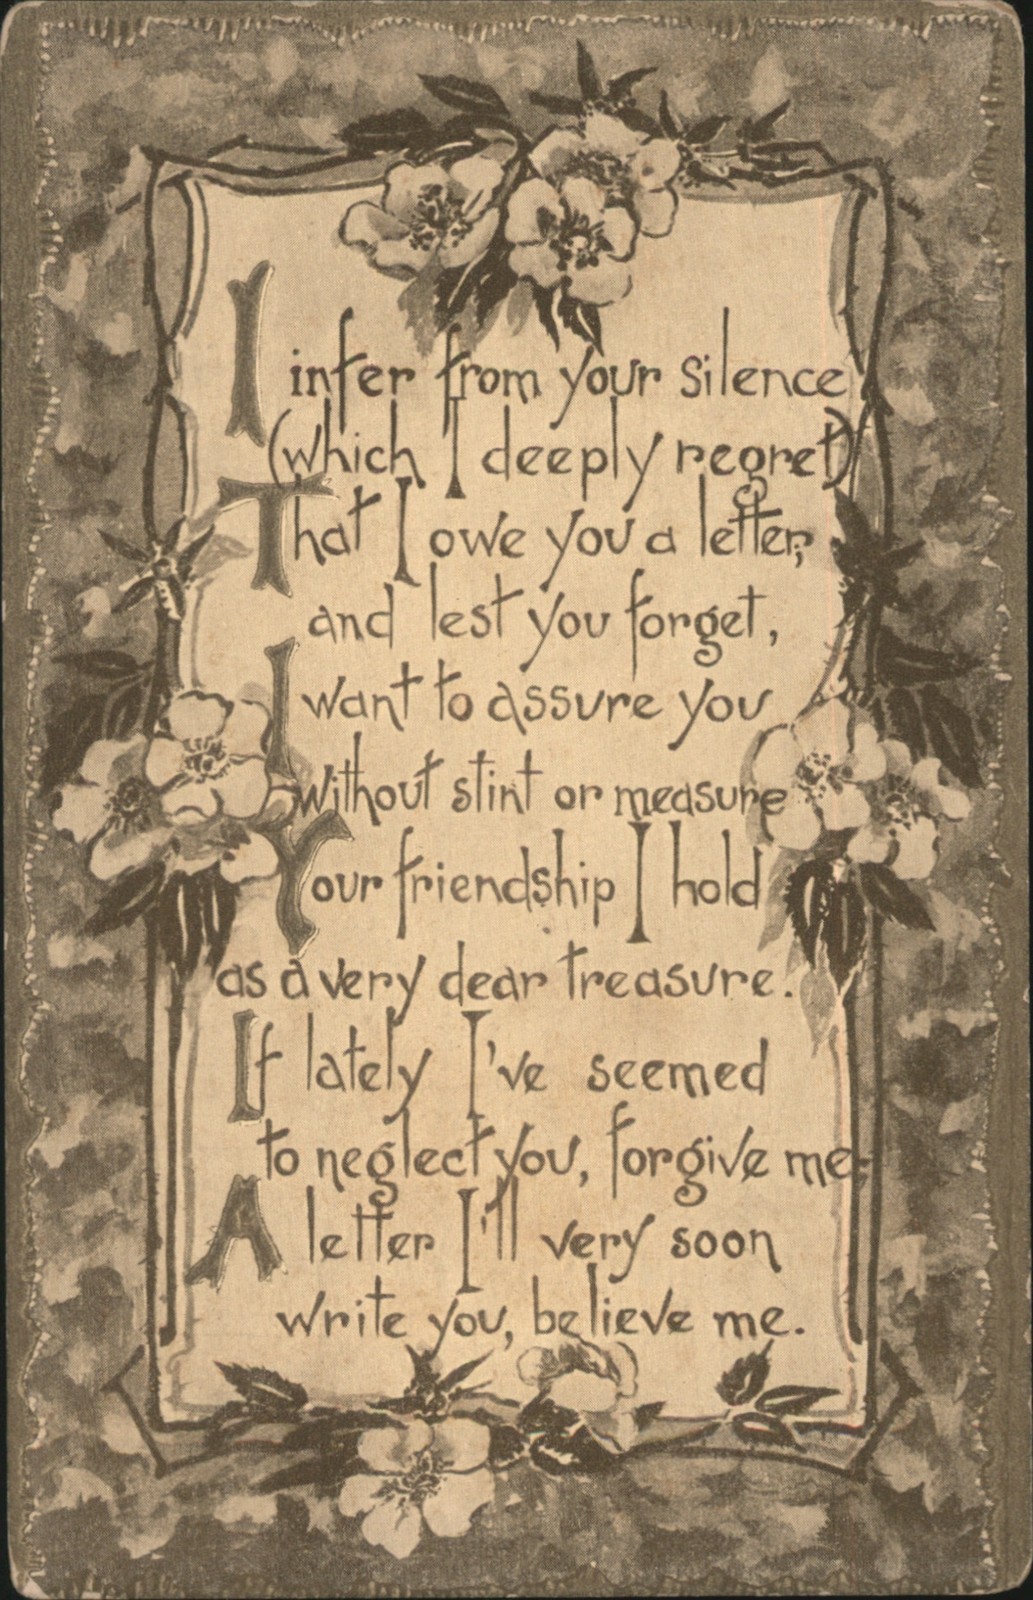 I infer from your silence
(which I deeply regret)
That I owe you a letter;
and lest you forget,
I want to assure you
without stint or measure
Your friendship I hold
as a very dear treasure.
If lately I've seemed
to neglect you, forgive me;
A letter I'll very soon
write you, believe me.